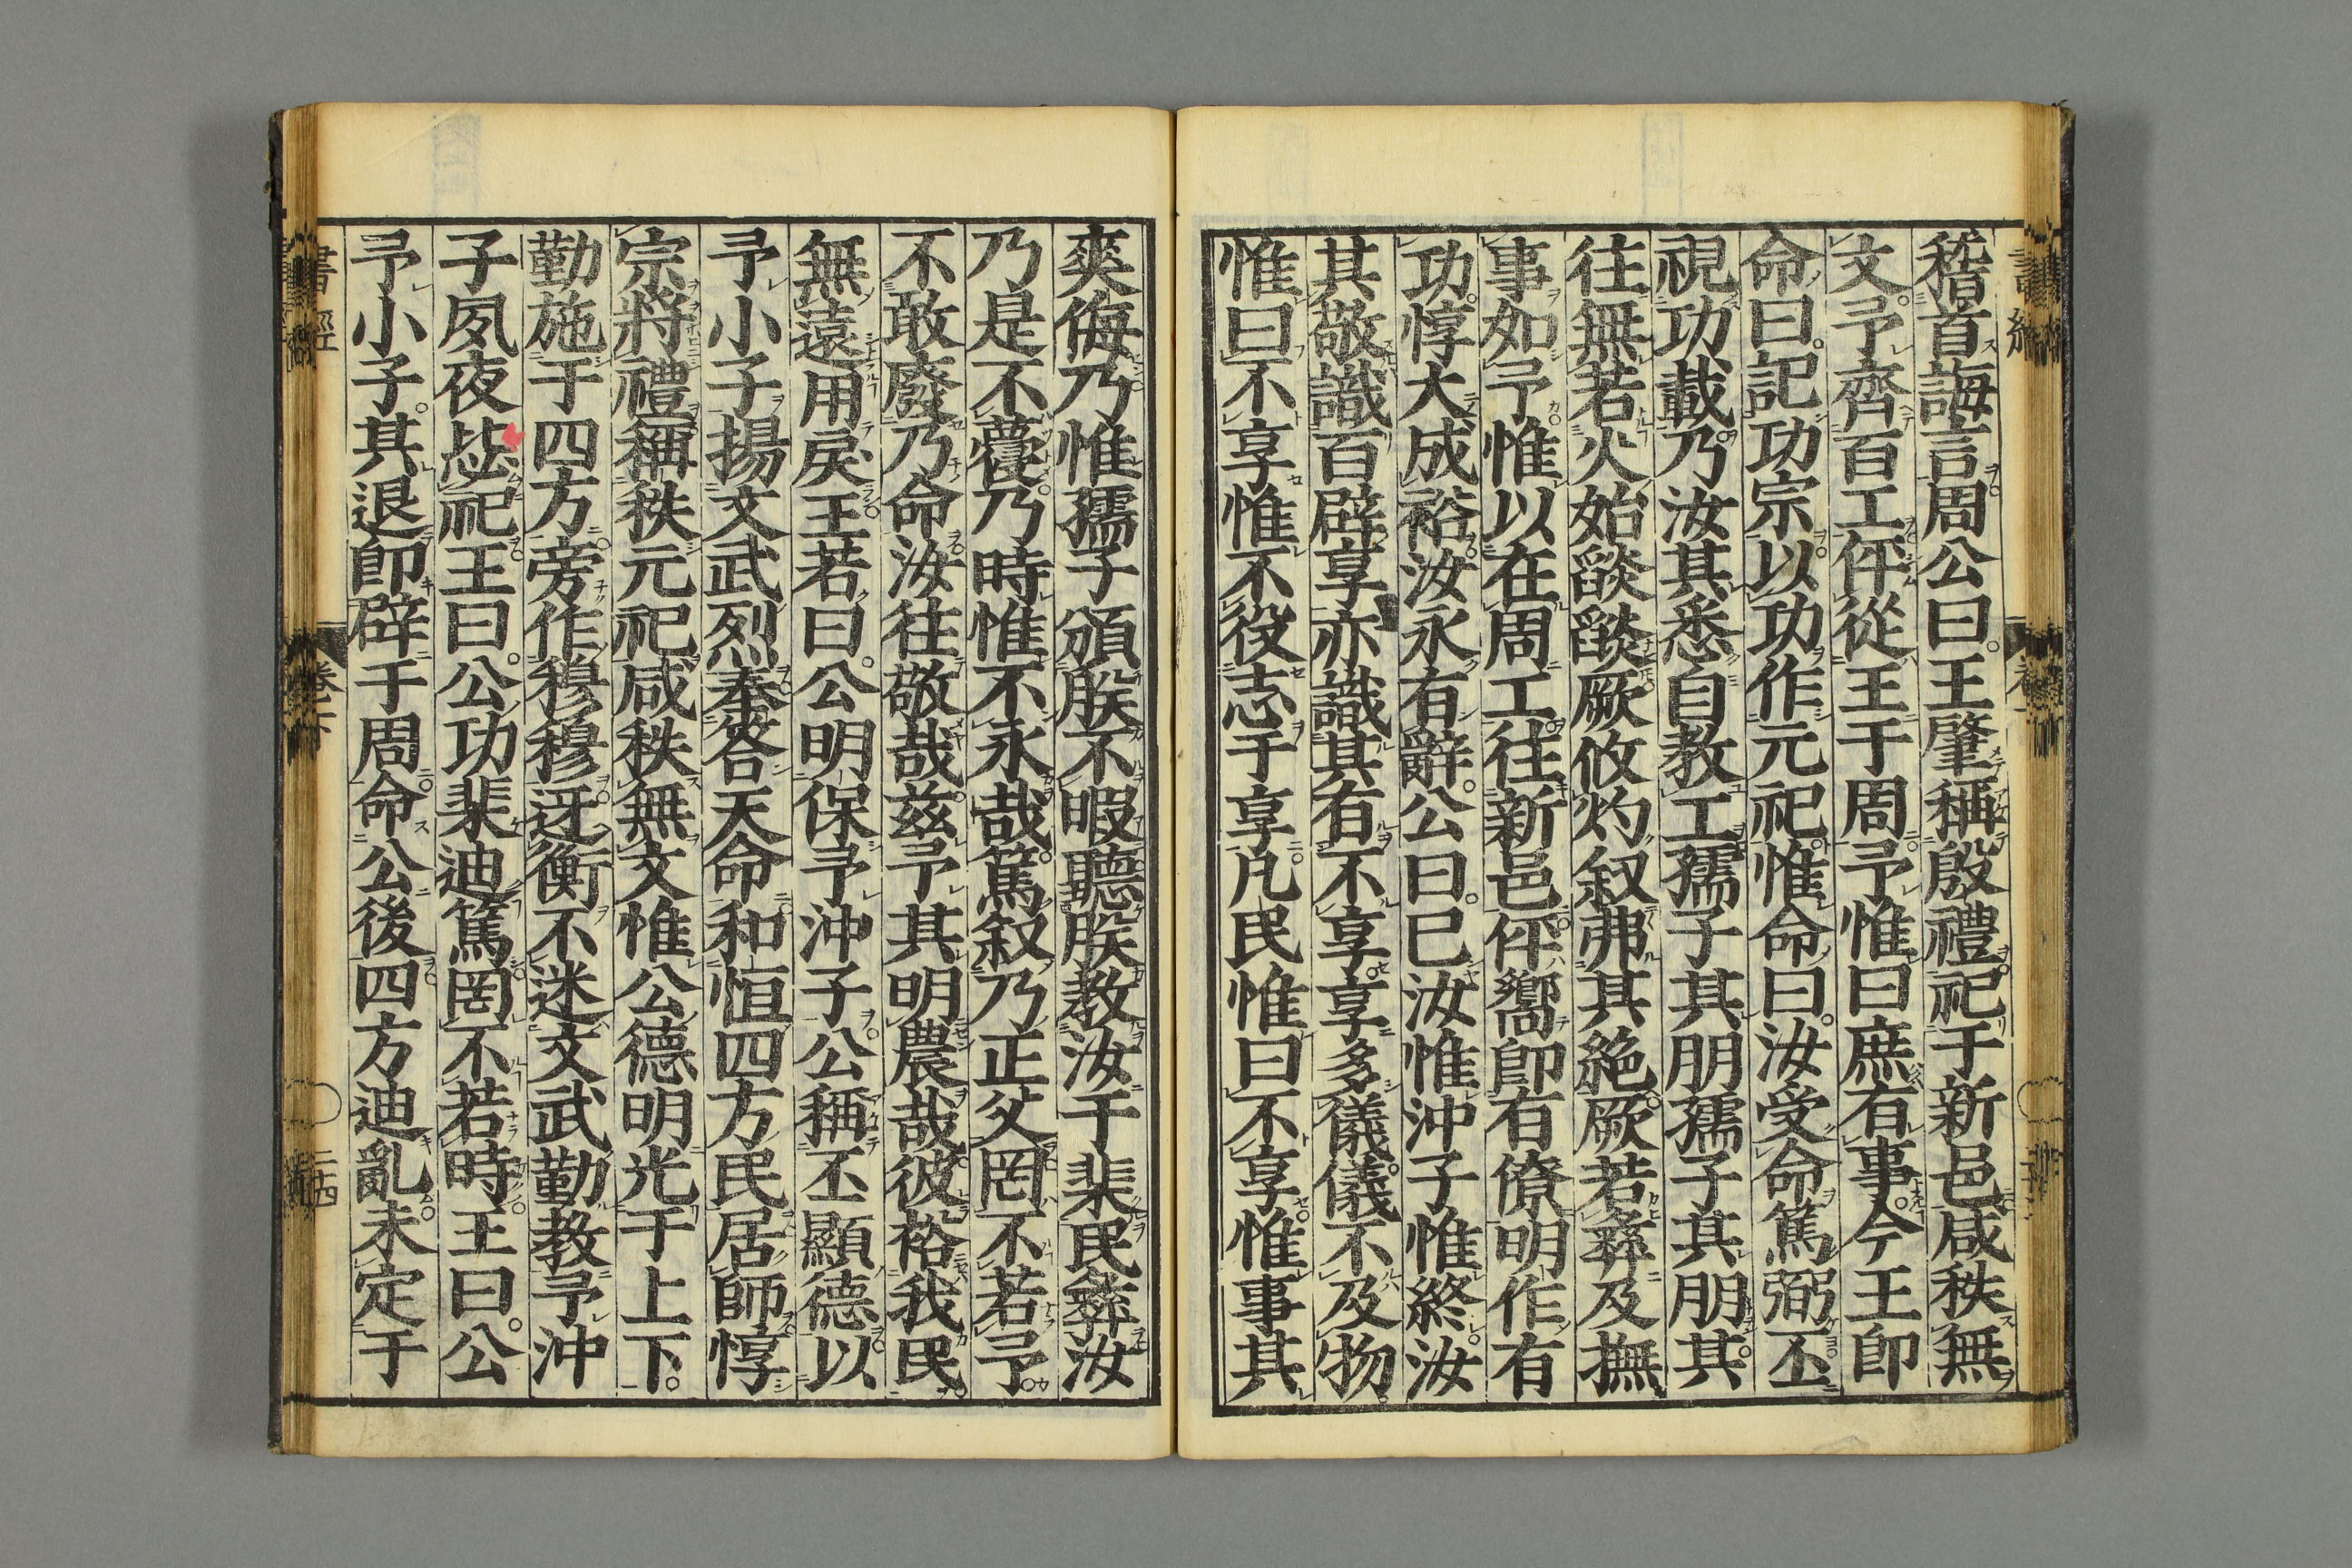 稽首誨言周公曰王肇稱殷禮祀于新邑咸秩無
文予齊百工伻從王于周予惟曰庶有事今王即
命曰記功宗以功作元祀惟命曰汝受命篤弼丕
視功載乃汝其悉自教工孺子其朋孺子其朋其
往無若火始燄燄厥攸灼叙弗其絶厥若彝及撫
事如予惟以在周工往新邑伻嚮即有僚明作有
功惇大成裕汝永有辭公曰已汝惟沖子惟終汝
其敬識百辟享亦識其有不享享多儀儀不及物
惟曰不享惟不役志于享凡民惟曰不享惟事其
爽侮乃惟孺子頒朕不暇聽朕教汝于棐民彝汝
乃是不蘉乃時惟不永哉篤叙乃正父罔不若予
不敢廢乃命汝往敬哉茲予其明農哉彼裕我民
無遠用戾王若曰公明保予沖子公稱丕顯德以
予小子揚文武烈奉荅天命和恒四方民居師惇
宗將禮稱秩元祀咸秩無文惟公德明光于上下
勤施于四方旁作穆穆迓衡不迷文武勤教予沖
子夙夜毖祀王曰公功棐迪篤罔不若時王曰公
予小子其退即辟于周命公後四方迪亂未定于
書經
卷之下
二十四